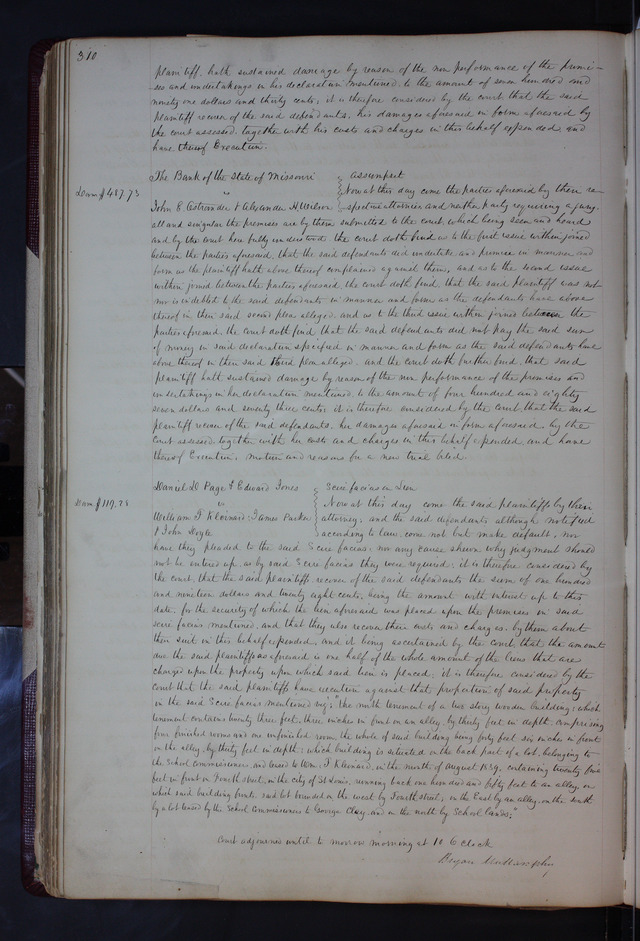 310
plaintiff hath sustained damage by reason of the non performance of the promi-
-ses and undertakings in his declaration mentioned to the amount of seven hundred and
ninety one dollars and thirty cents; it is therefore considered by the court that the said
plaintiff recover of the said defendants, his damages aforesaid in form aforesaid by
the court assessed, together with his costs and charges in this behalf expended, and
have thereof Execution.
The Bank of the State of Missouri } assumpsit
Dam $487.73 vs } Now at this day come the parties aforesaid by their re-
John E & Alexander H Wilson } spective attornies and neither party requiring a jury,
all and singular the premises are by them submitted to the court, which being seen and heard
and by the court here fully understood the court doth find as to the first issue within joined
between the parties aforesaid, that the said defendants did undertake and promise in manner and
form as the plaintiff hath above thereof complained against them, and as to the second issue
within joined between the parties aforesaid, the court doth find, that the said plaintiff was not
nor is indebted to the said defendants in manner and form as the defendants have above
thereof in their said second plea alleged, and as to the third issue within joined between the
parties aforesaid, the court doth find that the said defendants did not pay the said sum
of money in said declaration specified in manner and form as the said defendants have
above thereof in their said third plea alleged. and the court doth further find, that said
plaintiff hath sustained damage by reason of the non performance of the promises and
undertakings in her declaration mentioned, to the amount of four hundred and eighty
seven dollars and seventy three cents; it is therefore considered by the court, that the said
plaintiff recover of the said defendants, her damages aforesaid in form aforesaid, by the
court assessed together with her costs and charges in this behalf expended, and have
thereof Execution. motion and reasons for a new trial filed.
Daniel D Page & Edward Jones } Scire facias on Lien
Dam $119.28 vs } Now at this day come the said plaintiffs by their
William T James Parker } attorney, and the said defendants although notified
& John Doyle } according to law, come not but make default, nor
have they pleaded to the said Scire facias, nor any cause shewn why judgment should
not be entered up, as by said Scire facias they were required; it is therefore considered by
the court, that the said plaintiffs recover of the said defendants the sum of one hundred
and nineteen dollars and twenty eight cents, being the amount with interest up to this
date, for the security of which the lien aforesaid was placed upon the premises in said
scire facias mentioned, and that they also recover their costs and charges, by them about
their suit in this behalf expended, and it being ascertained by the court, that the amount
due the said plaintiffs as aforesaid is one half of the whole amount of the liens that are
charged upon the property upon which said lien is placed; it is therefore considered by the
court that the said plaintiffs have execution against that proportion of said property
in the said Scire facias mentioned viz; "the north tenement of a two story wooden building; which
tenement contains twenty three feet, three inches in front on an alley, by thirty feet in depth comprising
four finished rooms and one unfinished room, the whole of said building being forty feet six inches in front
on the alley, by thirty feet in depth; which building is situated on the back part of a lot, belonging to
the School Commissioners and leased to Wm. T in the month of August 1839, containing twenty five
feet in front on Fourth street, in the city of St Louis, running back one hundred and fifty feet to an alley, on
which said building fronts, said lot bounded on the west by Fourth street; on the East by an alley, on the south
by a lot leased by the School Commissioners to George Clay, and on the north by School lands;"
Court adjourned until to morrow morning at 10 O clock
Bryan Mullanphy